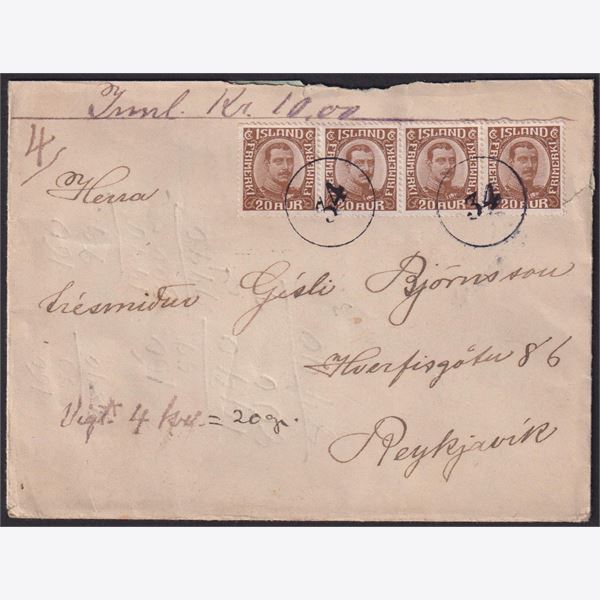 Innl. Kr. 10,00
4/
ÍSLAND ÍSLAND ÍSLAND ÍSLAND
FRIMERKI FRIMERKI FRIMERKI FRIMERKI
20 AUR 20 AUR 20 AUR 20 AUR
34 34
Herra
trésmiður Gísli Björnsson
Hverfisgötu 86
Vigt. 4 kv. = 20 gr.
Reykjavík